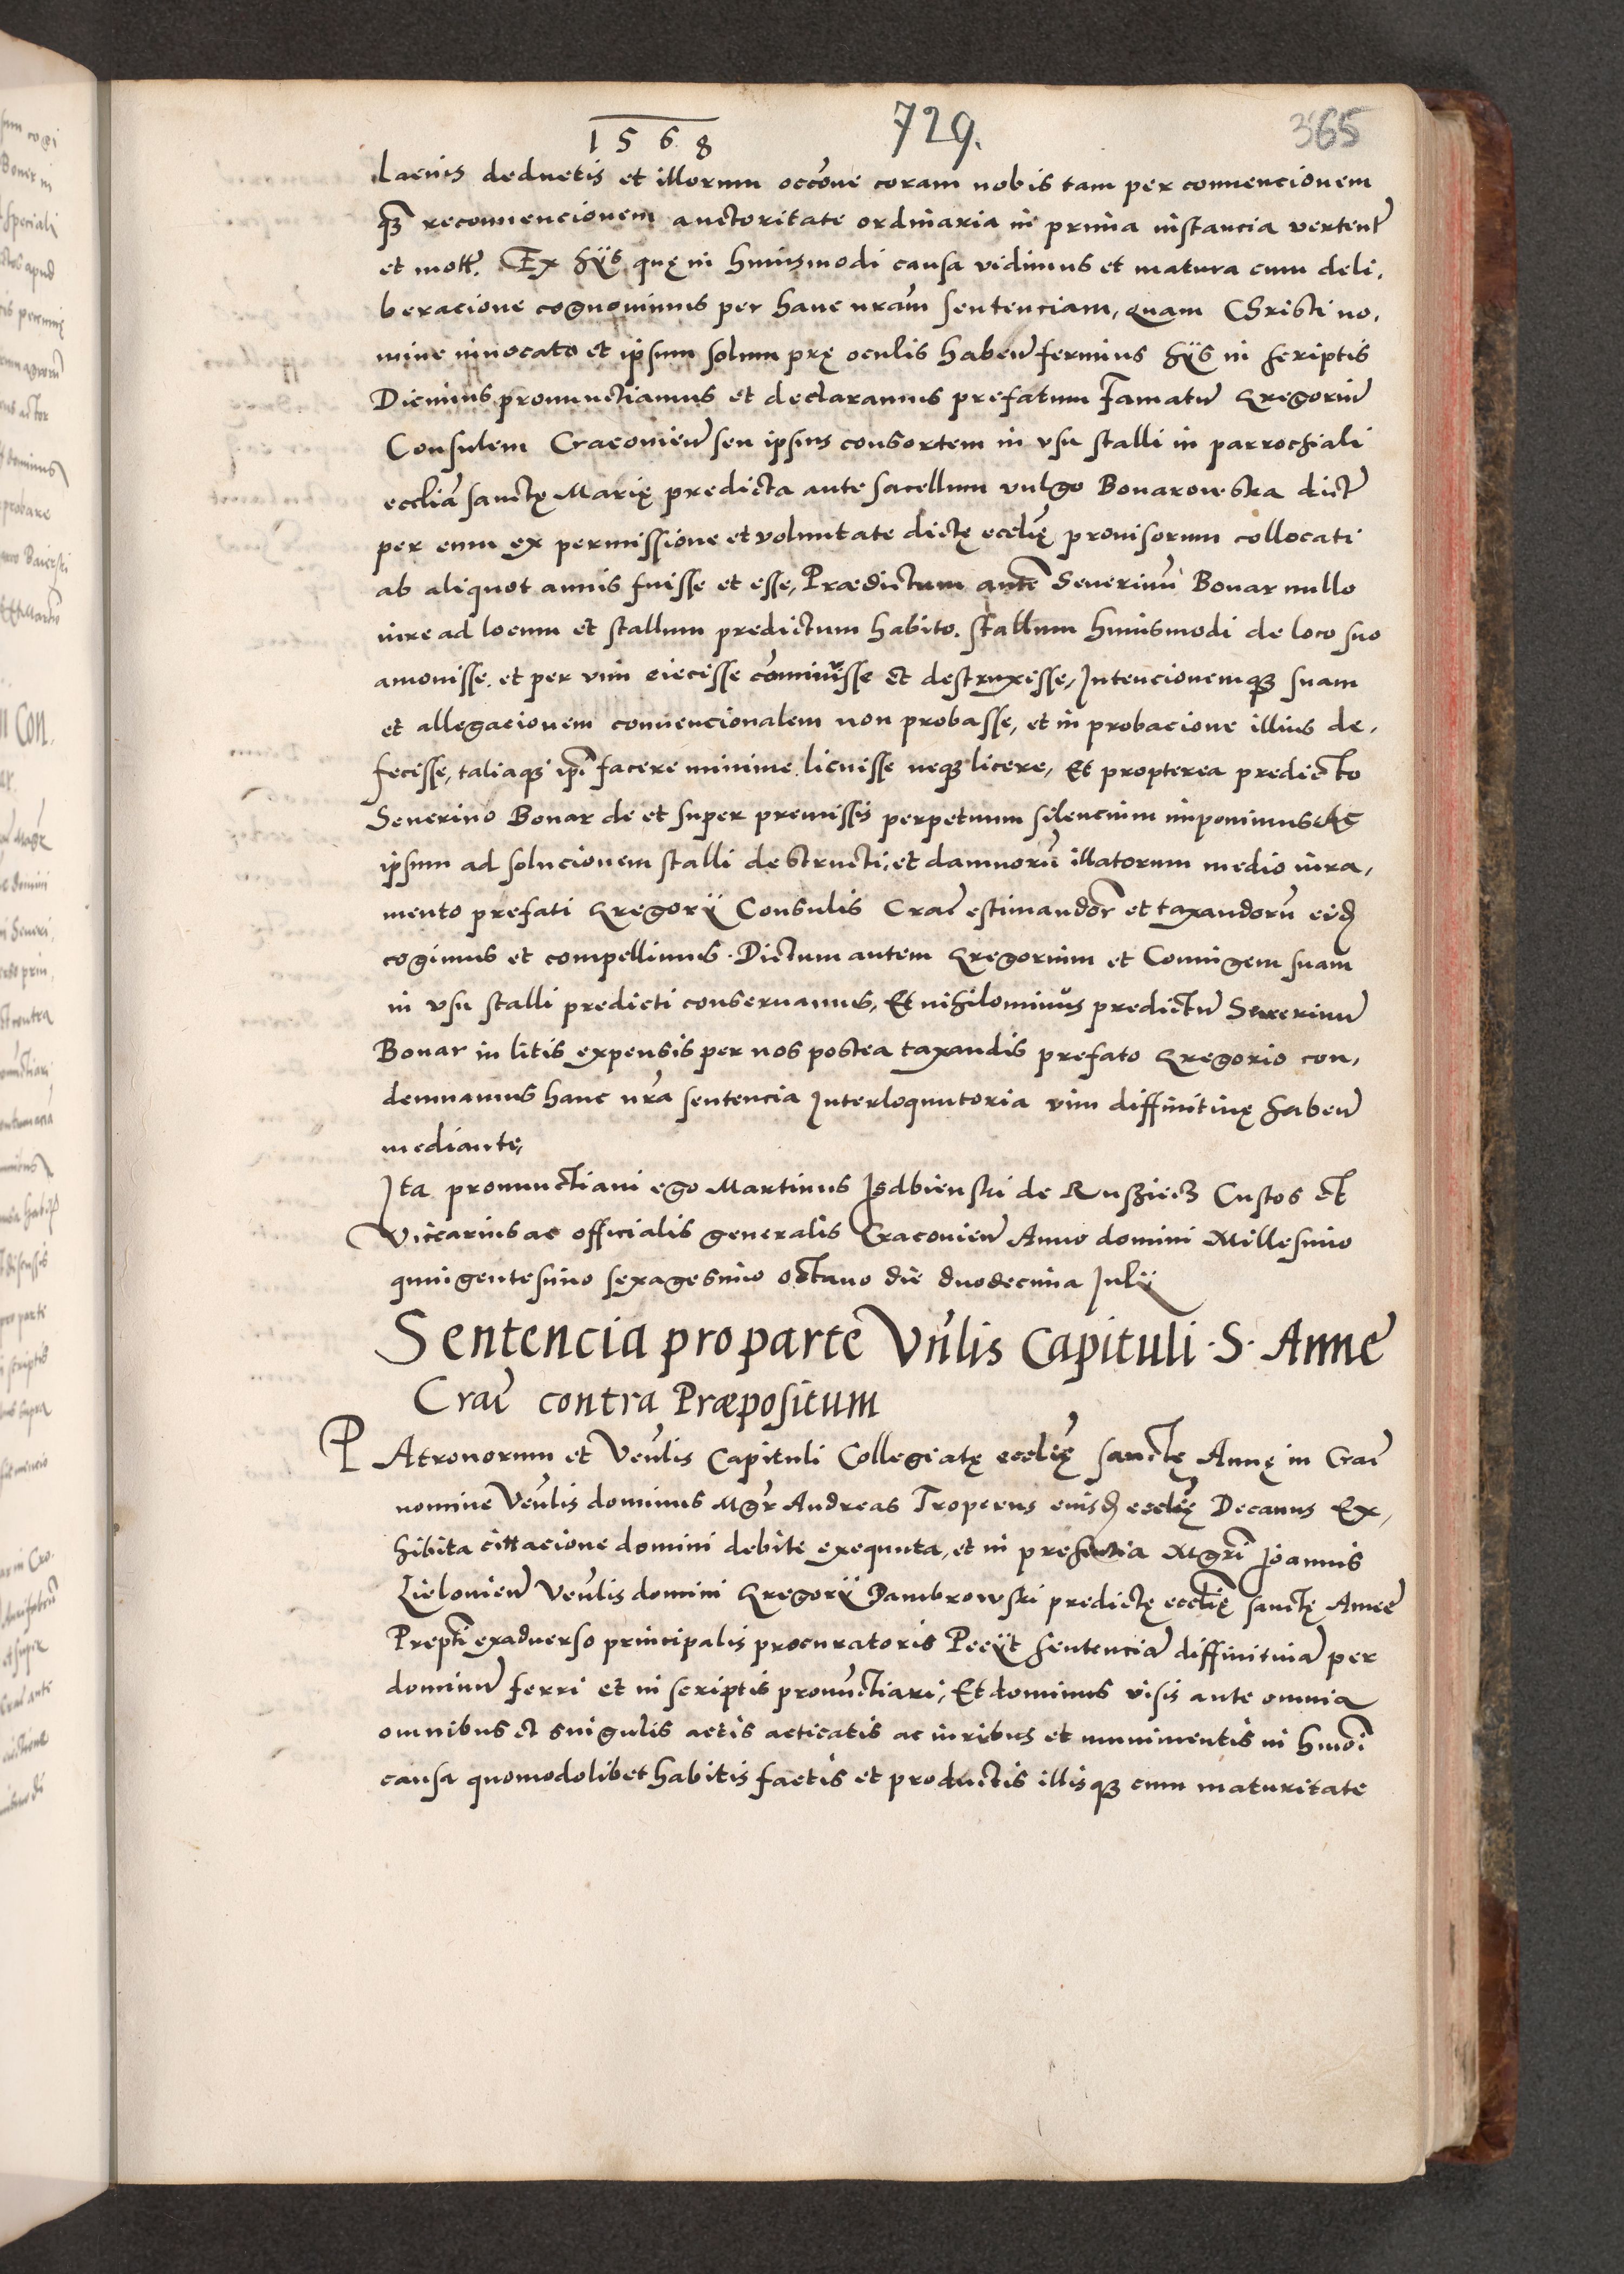 1568 729. 365
lacius deductis et illorum occõne coram nobis tam per conuencionem
q̃ reconuencionem auctoritate ordinaria in prima instancia vertent̃
et mott̃. Ex hÿs quę in huiusmodi causa vidimus et matura cum deli,
beracione cognouimus per hanc nram̃ sentenciam, quam Christi no,
mine inuocato et ipsum solum prę oculis haben̄ ferimus hÿs in scriptis
Dicimus pronunctiamus et declaramus prefatum famatū Gregoriū
Consulem Cracouien̄ seu ipsius consortem in vsu stalli in parrochiali
eccliã sanctę Marię predicta ante sacellum vulgo Bonarowska dict̃
per eum ex permissione et voluntate dictę ecclię̃ prouisorum collocati
ab aliquot annis fuisse et esse, Prædictum autẽ Seuerinũ Bonar nullo
iure ad locum et stallum predictum habito. stallum huiusmodi de loco suo
amouisse. et per vim eiecisse cõminuisse et destruxisse, Intencionemq̃ suam
et allegacionem conuencionalem non probasse, et in probacione illius de,
fecisse, taliaq̃ ip̃i facere minime licuisse neq̃ licere, Et propterea predicto
Seuerino Bonar de et super premissis perpetuum silencium imponimus Ac
ipsum ad solucionem stalli destructi, et damnorũ illatorum medio iura,
mento prefati Gregorÿ Consulis Crac̃ estimandor̃ et taxandorũ eid̃
cogimus et compellimus. Dictum autem Gregorium et Coniugem suam
in vsu stalli predicti conseruamus, Et nihilominus predictū Seuerinū
Bonar in litis expensis per nos postea taxandis prefato Gregorio con,
demnamus hanc nrã sentencia Interloquutoria vim diffinitiuę haben̄
mediante,
Ita pronunctiaui ego Martinus Isdbienski de Rusziecz Custos et
Vicarius ac officialis generalis Cracouien̄ Anno domini Millesimo
quingentesimo sexagesimo octauo die duodecima Julÿ
Sentencia pro parte Vñlis Capituli .S. Anne
Crac̃ contra Præpositum
PAtronorum et Veñlis Capituli Collegiatę ecclię̃ sanctę Annę in Crac̃
nomine Veñlis dominus Mgr̃ Andreas Troperus eiusd̃ ecclię̃ Decanus Ex,
hibita cittacione domini debite exequuta, et in presentia Mgr̃i Joannis
Lielouien̄ Veñlis domini Gregorÿ Dambrowski predictę ecclię̃ sanctę Anneẽ
Prepti̇̃ ex aduerso principalis procuratoris Peeÿt sentenciã diffinitiuã per
dominū ferri et in scriptis pronũctiari, Et dominus visis ante omnia
omnibus et singulis actis acticatis ac iuribus et munimentis in hmõi
causa quomodolibet habitis factis et productis illisq̃ cum maturitate